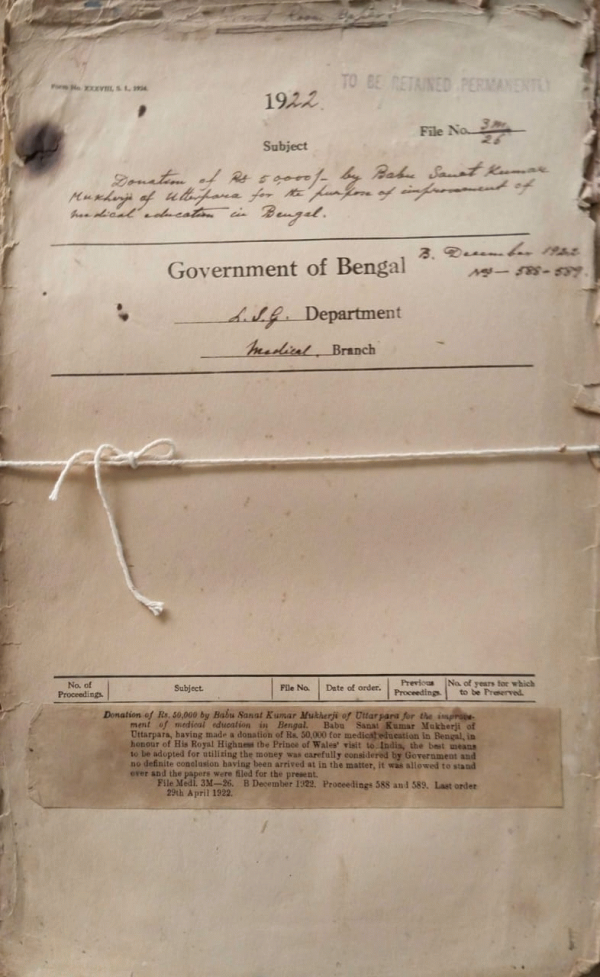 Form No. XXXVIII, S. I., 1924.
TO BE RETAINED PERMANENTLY
1922.
File No. 3M/26
Subject
Donation of Rs 50000/- by Babu Sanat Kumar
Mukherji of Utterpara for the purpose of improvement of
medical education in Bengal.
B. December 1922
Government of Bengal
Nos — 588-589.
L.S.G. Department
Medical. Branch
No. of Proceedings. Subject. File No. Date of order. Previous Proceedings. No. of years for which to be Preserved.
Donation of Rs. 50,000 by Babu Sanat Kumar Mukherji of Uttarpara for the improve-
ment of medical education in Bengal. Babu Sanat Kumar Mukherji of
Uttarpara, having made a donation of Rs. 50,000 for medical education in Bengal, in
honour of His Royal Highness the Prince of Wales' visit to India, the best means
to be adopted for utilizing the money was carefully considered by Government and
no definite conclusion having been arrived at in the matter, it was allowed to stand
over and the papers were filed for the present.
File Medl. 3M—26. B December 1922. Proceedings 588 and 589. Last order
29th April 1922.